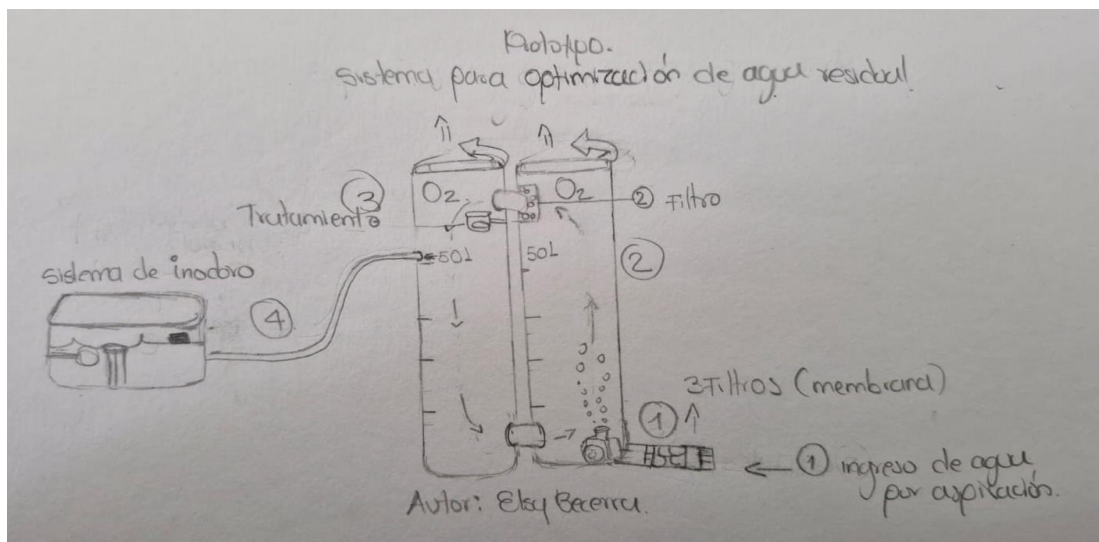 Prototipo.
Sistema para optimización de agua residual
O2
O2
② Filtro
③
Tratamiento
50l
50L
②
sistema de inodoro
④
3 Filtros (membrana)
①
① ingreso de agua
por aspiración.
Autor: Elsy Becerra.